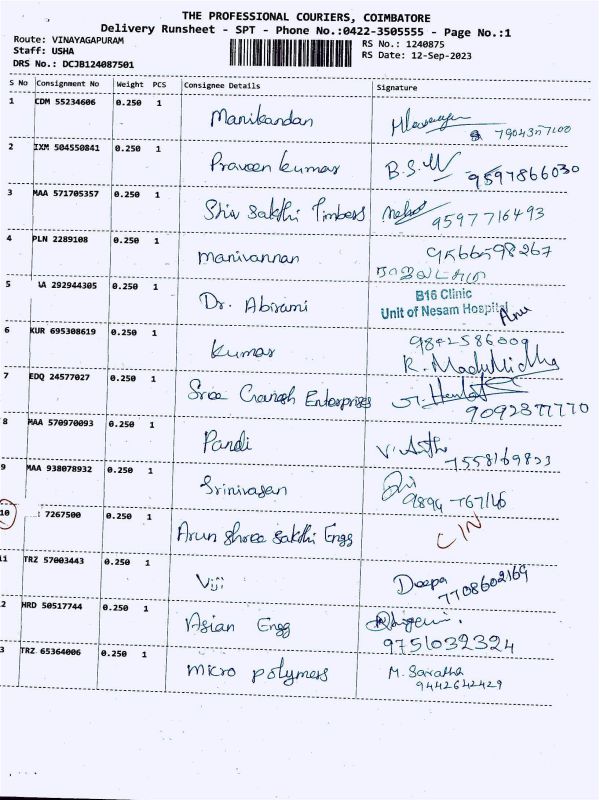 THE PROFESSIONAL COURIERS, COIMBATORE
Delivery Runsheet - SPT - Phone No.:0422-3505555 - Page No.:1
Route: VINAYAGAPURAM
Staff: USHA
DRS No.: DCJB124087501
RS No.: 1240875
RS Date: 12-Sep-2023
S No Consignment No Weight PCS Consignee Details Signature
1 CDM 55234606 0.250 1 Manikandan
2 IXM 504550841 0.250 1 Praveen kumar B.S. 9597866030
3 MAA 571705357 0.250 1 Shiv Sakthi Timbers 9597716493
4 PLN 2289108 0.250 1 Manivannan 9566598267
5 292944305 0.250 1 Dr. Abirami
B16 Clinic
Unit of Nesam Hospital
6 KUR 695308619 0.250 1 Kumar 9842586009
7 EDQ 24577027 0.250 1 Sree Enterprises
8 MAA 570970093 0.250 1 Pandi
9 MAA 938078932 0.250 1 Srinivasan
10 7267500 0.250 1 Arun Shree Sakthi Engg
11 TRZ 57003443 0.250 1 Viji Deepa
7708602169
2 HRD 50517744 0.250 1 Asian Engg
9751032324
3 TRZ 65364006 0.250 1 Micro polymers M. Saratha
9442642429